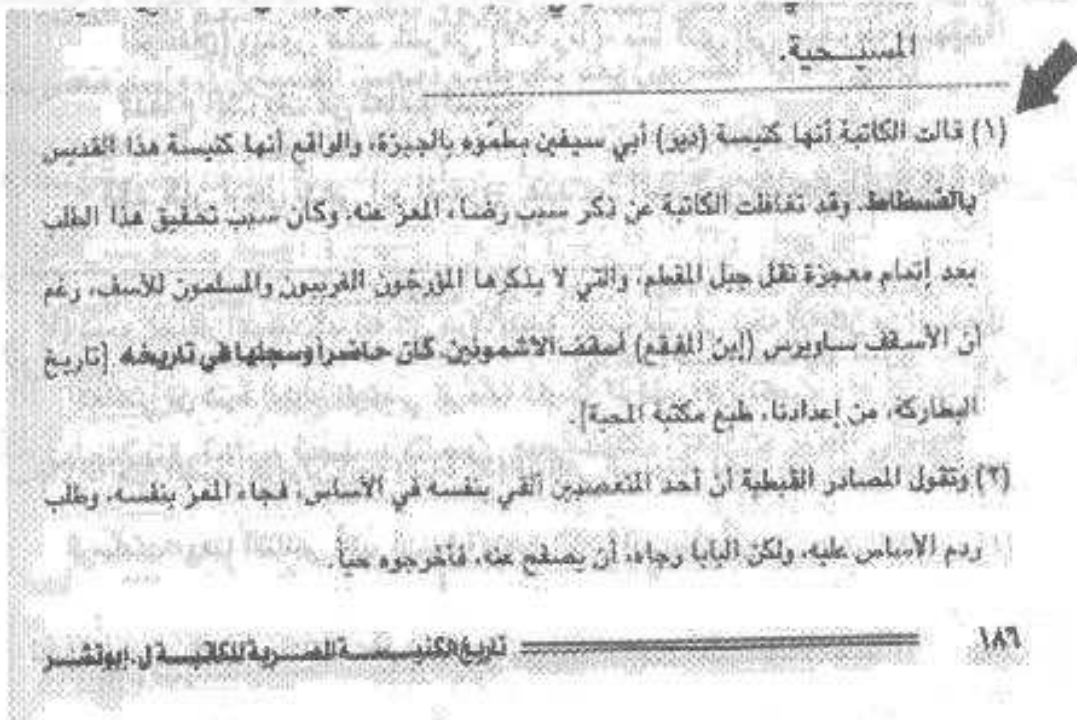 المسيحية.
(١) قالت الكاتبة أنها كنيسة (دير) أبي سيفين بطموه بالجيزة، والواقع أنها كنيسة هذا القديس
بالفسطاط. وقد تغافلت الكاتبة عن ذكر سبب رضاء المعز عنه. وكان سبب تحقيق هذا الطلب
بعد إتمام معجزة نقل جبل المقطم، والتي لا يذكرها المؤرخون الغربيون والمسلمون للأسف، رغم
أن الأسقف ساويرس (إبن المقفع) أسقف الاشمونين كان حاضراً وسجلها في تاريخه [تاريخ
البطاركة، من إعدادنا، طبع مكتبة المحبة].
(٢) وتقول المصادر القبطية أن أحد المتعصبين ألقي بنفسه في الأساس، فجاء المعز بنفسه، وطلب
ردم الأساس عليه، ولكن البابا رجاه، أن يصفح عنه، فأخرجوه حياً.
١٨٦ تاريخ الكنيسة المصرية للكاتبة ل. إبوتشر